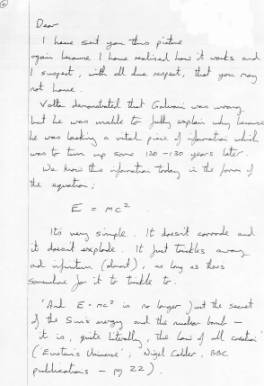 Dear
I have sent you this picture
again because I have realised how it works and
I suspect, with all due respect, that you may
not have.
Volta demonstrated that Galvani was wrong
but he was unable to fully explain why because
he was lacking a vital piece of information which
was to turn up some 120 - 130 years later.
We know this information today in the form of
the equation;
E = mc²
It's very simple. It doesn't corrode and
it doesn't explode. It just trickles away
ad infinitum (almost), as long as there's
somewhere for it to trickle to.
'And E = mc² is no longer just the secret
of the Sun's energy and the nuclear bomb -
it is, quite literally, the law of all creation'
('Einstein's Universe', Nigel Calder, BBC
publications - p 22).